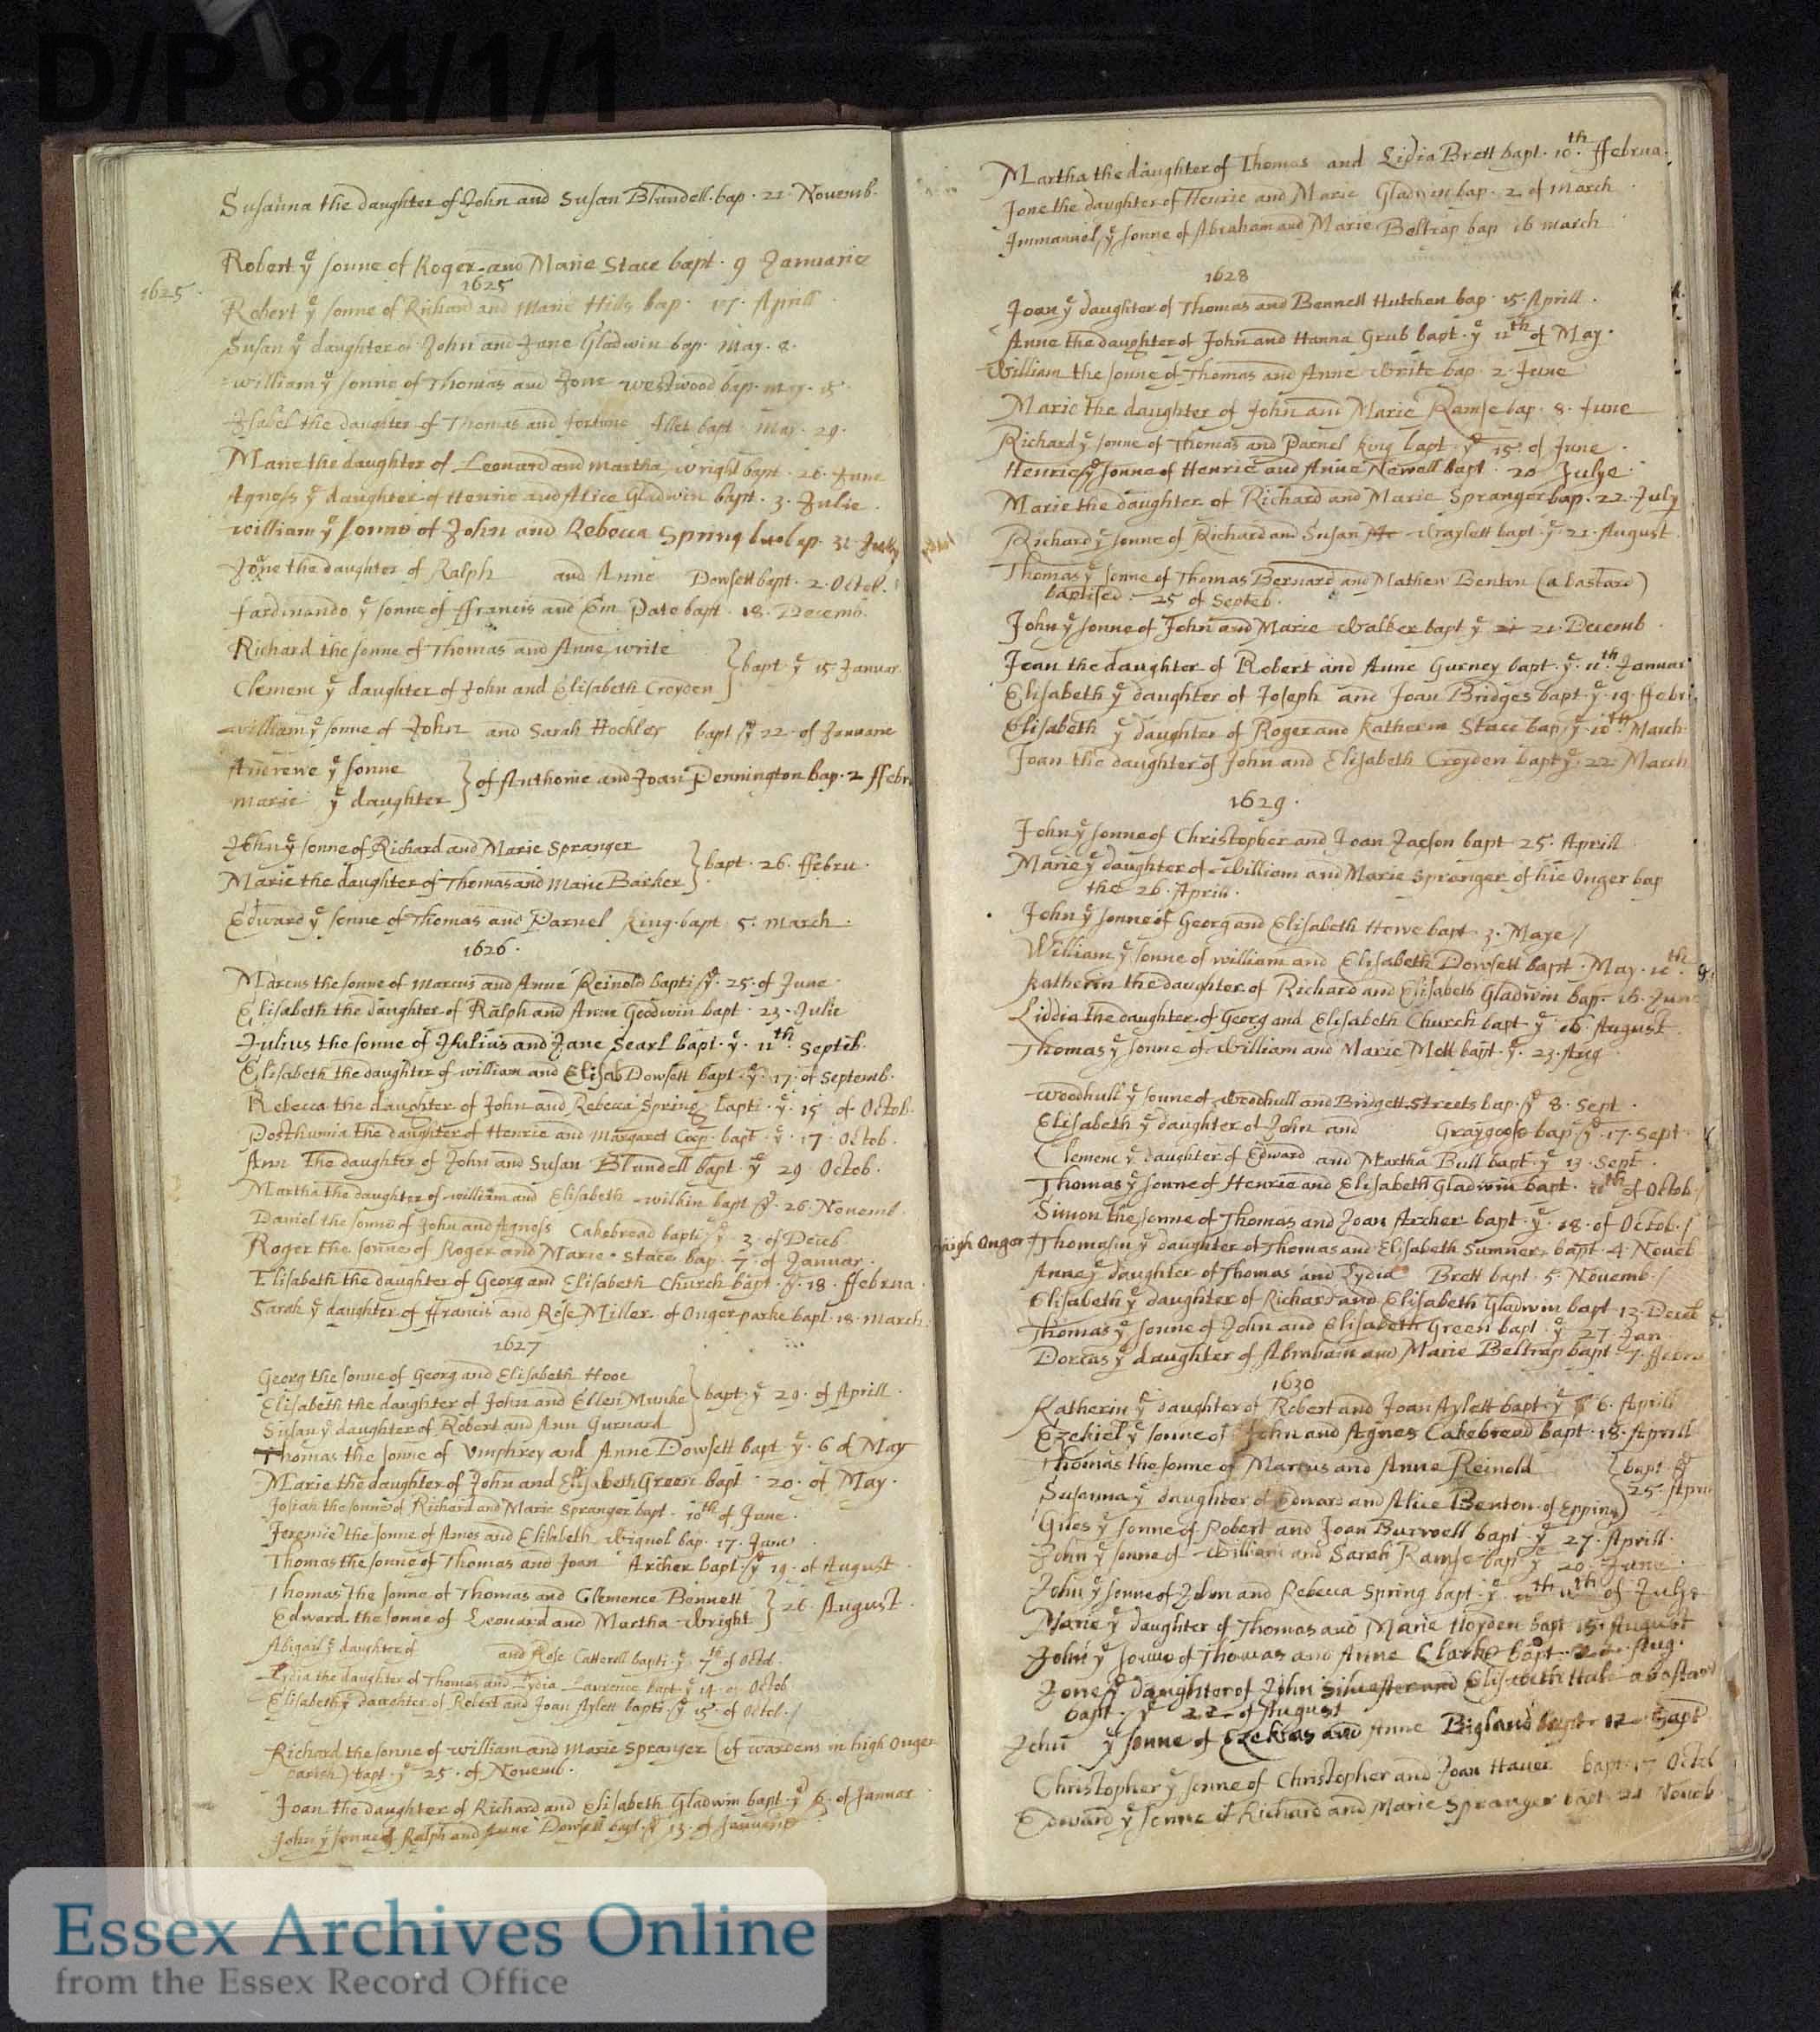 D/P 84/1/1
Susanna the daughter of John and Susan Blundell. bap. 21. Novemb.
Robert yͤ sonne of Roger and Marie Stace bapt. 9 Januarie
1625.
1625
Robert yͤ sonne of Richard and Marie Hills bap. 17. Aprill
Susan yͤ daughter of John and Jane Gladwin bap. May. 8.
William yͤ sonne of Thomas and Jone Westwood bap. may. 15.
Isabel the daughter of Thomas and fortune Allet bapt. may. 29.
Marie the daughter of Leonard and Martha Wright bapt. 26. June
Agness yͤ daughter of Henrie and Alice Gladwin bapt. 3. Julie.
William yͤ sonne of John and Rebecca Spring bap. 31. July
Jone the daughter of Ralph and Anne Dowsett bapt. 2. Octob.
fardinando yͤ sonne of ffrancis and Em Pate bapt. 18. Decemb.
Richard the sonne of Thomas and Anne write
Clemenc yͤ daughter of John and Elisabeth Croyden } bapt. yͤ 15 Januar.
William yͤ sonne of John and Sarah Hockley bapt yͤ 22. of Januarie
Andrewe yͤ sonne
marie yͤ daughter } of Anthonie and Joan Pennington bap. 2 ffebr
John yͤ sonne of Richard and Marie Spranger
Marie the daughter of Thomas and Marie Barker } bapt. 26. ffebru.
Edward yͤ sonne of Thomas and Parnel King. bapt. 5. march.
1626.
Marcus the sonne of Marcus and Anne Reinold bapti yͤ. 25. of June.
Elisabeth the daughter of Ralph and Ann Goodwin bapt. 23. Julie
Julius the sonne of Julius and Jane Searl bapt. yͤ. 11th. Septeb.
Elisabeth the daughter of William and Elisab Dowsett bapt. yͤ. 17. of Septemb.
Rebecca the daughter of John and Rebecca Spring bapti. yͤ. 15 of Octob.
Posthumia the daughter of Henrie and Margaret bapt. yͤ. 17. Octob.
Ann the daughter of John and Susan Blundell bapt. yͤ 29 Octob.
Martha the daughter of William and Elisabeth Wilkin bapt yͤ. 26. Novemb.
Daniel the sonne of John and Agness Cakebread bapti yͤ 3. of Deceb
Roger the sonne of Roger and Marie. Stace bap. 7. of Januar.
Elisabeth the daughter of Georg and Elisabeth Church bapt. yͤ. 18. ffebrua.
Sarah yͤ daughter of ffrancis and Rose Miller. of Onger parke bapt. 18. march.
1627
Georg the sonne of Georg and Elisabeth Hooe
Elisabeth the daughter of John and Ellen Munke } bapt. yͤ 29. of Aprill.
Susan yͤ daughter of Robert and Ann Gurnard
Thomas the sonne of Umphrey and Anne Dowsett bapt yͤ. 6 of May
Marie the daughter of John and Elisabeth Green bapt. 20. of May.
Josiah the sonne of Richard and Marie Spranger bapt. 10th of June.
Jeremie the sonne of Amos and Elisabeth Wignol bap. 17. June
Thomas the sonne of Thomas and Joan Archer bapt. yͤ 19. of August
Thomas the sonne of Thomas and Clemence Bennett
Edward. the sonne of Leonard and Martha Wright } 26. August.
Abigail yͤ daughter of and Rose Catterell bapti. yͤ 7th of Octob.
Lydia the daughter of Thomas and Lydia Lawrence bapt yͤ 14. of Octob
Elisabeth yͤ daughter of Robert and Joan Aylett bapti. yͤ 15. of Octob.
Richard the sonne of William and Marie Spranger (of wardens in high Onger
parish) bapt. yͤ 25. of Novemb.
Joan the daughter of Richard and Elisabeth Gladwin bapt. yͤ 6. of Januar
John yͤ sonne of Ralph and Anne Dowsett bapt. yͤ 13. of Januarie
Martha the daughter of Thomas and Lidia Brett bapt. 10th. ffebrua.
Jone the daughter of Henrie and Marie Gladwin bap. 2 of March.
Immanuel yͤ sonne of Abraham and Marie Beltrap bap 16 march
1628
Joan yͤ daughter of Thomas and Bennett Hutchen bap. 15. Aprill.
Anne the daughter of John and Hanna Grub bapt. yͤ 11th of May.
William the sonne of Thomas and Anne Write bap. 2. June
Marie the daughter of John and Marie Ramse bap. 8. June
Richard yͤ sonne of Thomas and Parnel King bapt yͤ 15. of June.
Henrie yͤ sonne of Henrie and Anne Newell bapt. 20 Julye.
Marie the daughter of Richard and Marie Spranger bap. 22. July
Richard yͤ sonne of Richard and Susan Wraylett bapt. yͤ. 21. August
Thomas yͤ sonne of Thomas Bernard and Mathew Benton (a bastard)
baptised. 25 of Septeb.
John yͤ sonne of John and Marie Walker bapt yͤ 21. Decemb
Joan the daughter of Robert and Anne Gurney bapt. yͤ. 11th. Januar
Elisabeth yͤ daughter of Joseph and Joan Bridges bapt. yͤ. 19. ffebr
Elisabeth yͤ daughter of Roger and Katherin Stace bap yͤ. 10th. March
Joan the daughter of John and Elisabeth Croyden bapt yͤ. 22 March
1629.
John yͤ sonne of Christopher and Joan Jacson bapt 25. Aprill
Marie yͤ daughter of William and Marie Spranger of hie Onger bap
the 26. Aprill.
John yͤ sonne of Georg and Elisabeth Howe bapt 3. Maye
William yͤ sonne of William and Elisabeth Dowsett bapt. May. 10th.
Katherin the daughter of Richard and Elisabeth Gladwin bap. 16. June
Liddia the daughter of Georg and Elisabeth Church bapt yͤ 16. August
Thomas yͤ sonne of William and Marie Mott bapt. yͤ. 23. Aug
Woodhull yͤ sonne of Woodhull and Bridgett Streets bap. yͤ 8. Sept.
Elisabeth yͤ daughter of John and Graygoose bap yͤ. 17. Sept
Clemenc yͤ daughter of Edward and Martha Bull bapt. yͤ 13. Sept.
Thomas yͤ sonne of Henrie and Elisabeth Gladwin bapt. 10th of Octob
Simon the sonne of Thomas and Joan Archer bapt. yͤ. 18. of Octob.
High Onger Thomasin yͤ daughter of Thomas and Elisabeth Sumner, bapt. 4. Noveb
Anne yͤ daughter of Thomas and Lydia Brett bapt. 5. Novemb.
Elisabeth yͤ daughter of Richard and Elisabeth Gladwin bapt 13. Deceb
Thomas yͤ sonne of John and Elisabeth Green bapt. yͤ 27. Jan
Dorcas yͤ daughter of Abraham and Marie Beltrap bapt. 7. ffebru
1630
Katherin yͤ daughter of Robert and Joan Aylett bapt. yͤ 6. Aprill
Ezekiel yͤ sonne of John and Agnes Cakebread bapt. 18. Aprill
Thomas the sonne of Marcus and Anne Reinold } bapt. yͤ
Susanna yͤ daughter of Edward and Alice Benton. of Epping } 25. Apri
Giles yͤ sonne of Robert and Joan Burwell bapt. yͤ 27. Aprill.
John yͤ sonne of William and Sarah Ramse bap yͤ 20. June.
John yͤ sonne of John and Rebecca Spring bapt. yͤ. 11th of Julye
Marie yͤ daughter of Thomas and Marie Hoyden bapt 15. August
John yͤ sonne of Thomas and Anne Clarke bapt. Aug.
Jone yͤ daughter of John Silvester and Elisabeth Hale a bastard
bapt. yͤ 22 of August
John yͤ sonne of Ezekias and Anne Bigland bapt. 12 Sept
Christopher yͤ sonne of Christopher and Joan Hauer bapt. 17 Octob
Edward yͤ sonne of Richard and Marie Spranger bapt. 21 Noveb.
Essex Archives Online
from the Essex Record Office